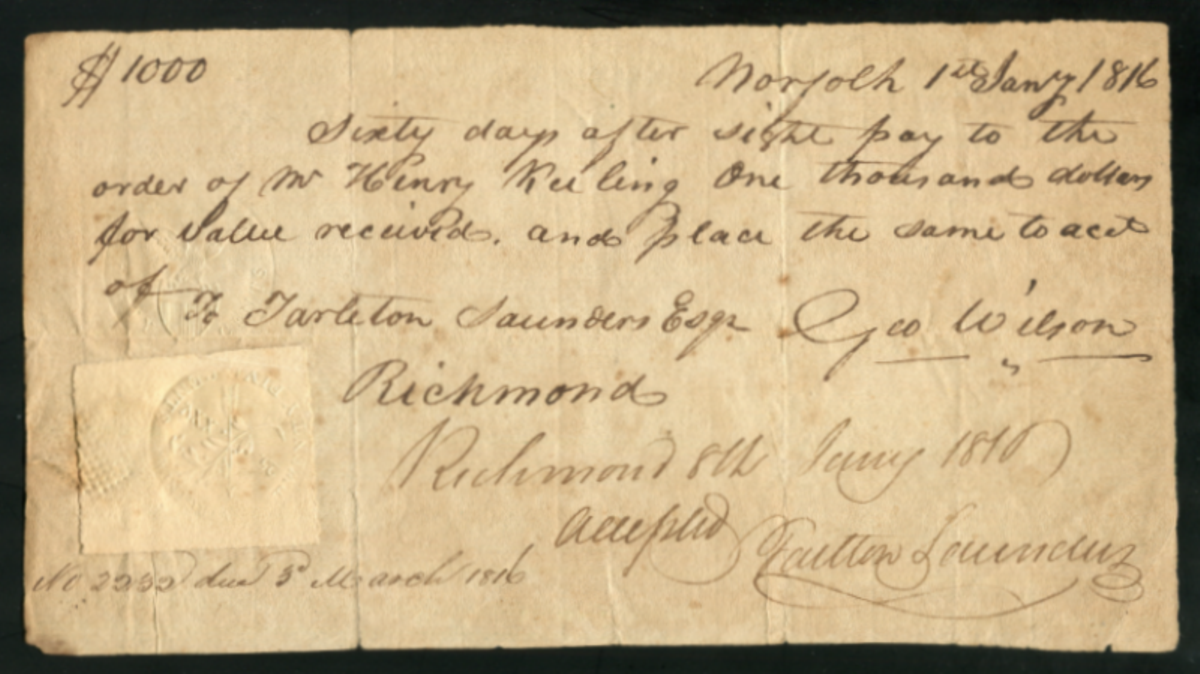 $1000
Norfolk 1st Jany 1816
Sixty days after sight pay to the
order of Mr Henry Keeling One thousand dollars
for value received. and place the same to acct
of
To Tarleton Saunders Esqr Geo Wilson
Richmond
Richmond 8th Jany 1816
accepted
Tarlton Saunders
No 2232 due 3d March 1816